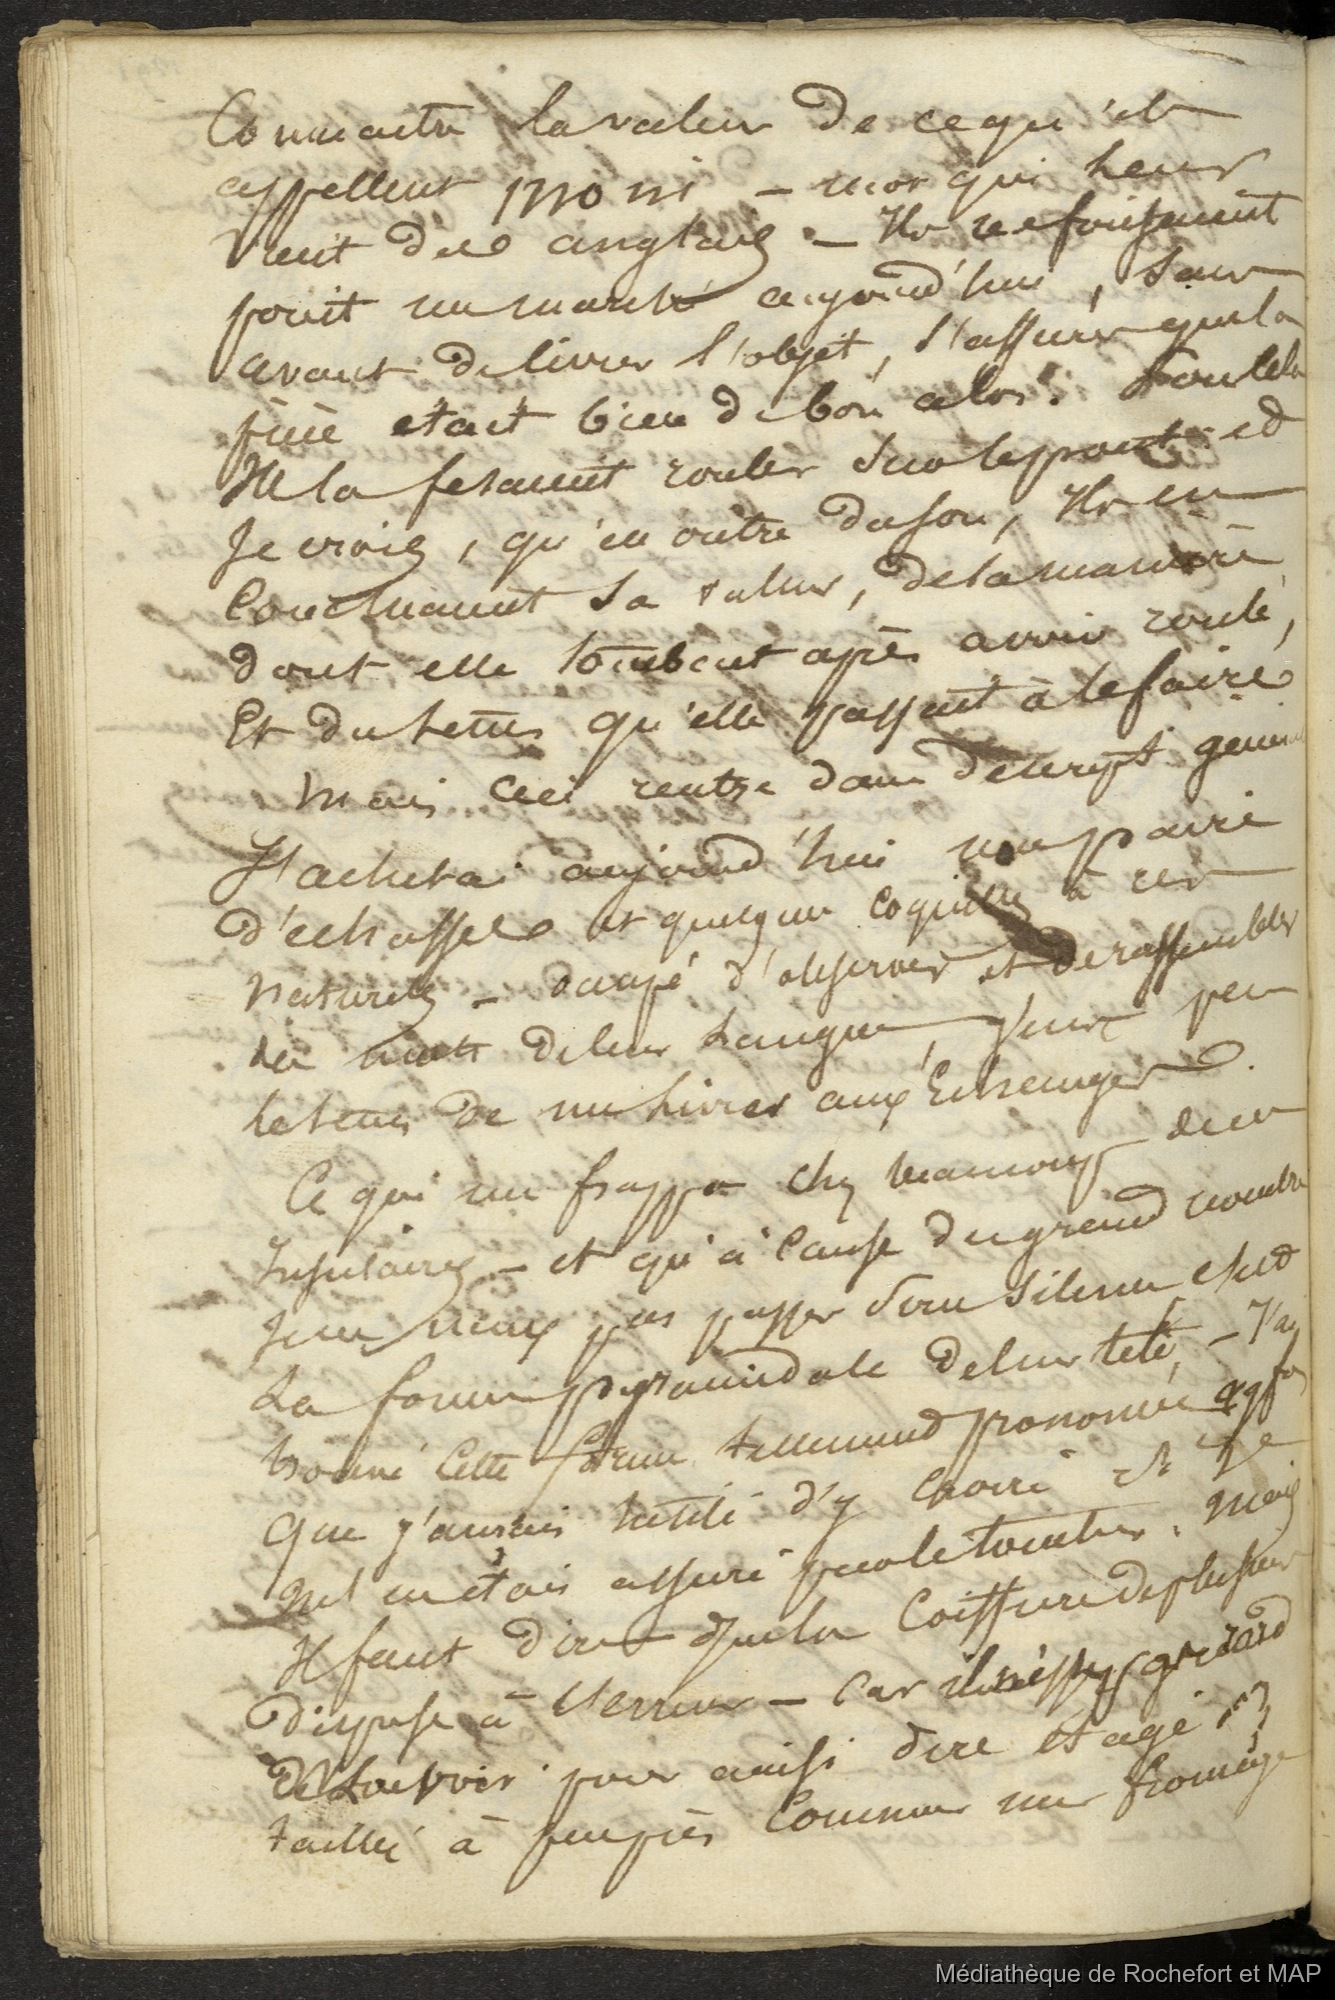 Connaitre la valeur de ce qu'ils
appellent moni - mot qui leur
vient des anglais - Ils ne faisaient
point un marché aujourd'hui, sans
avant de livrer l'objet, s'assurer que la
pièce etait bien de bon aloi. Pour cela
Ils la fesaient rouler sur le pont et
Je crois, qu'en outre du son, Ils en
Concluaient sa valeur, de la manière
dont elle tombait après avoir roulé,
Et du tems qu'elle passait à le faire
Mais ceci rentre dans descript. general
J'achetai aujourd'hui une paire
d'echasses et quelques coquilles à ces
naturels - occupé d'observer et de rassembler
les mots de leur langue, j'eus peu
le tems de me livrer aux Echanges.
Ce qui me frappa chez beaucoup de ces
Insulaires - et qu'à cause du grand nombre
Je ne veux pas passer sous silence c'est
La forme pyramidale de leur tête, - J'ai
trouvé cette forme tellement prononcée qqfois
que j'aurais hésité d'y croire si Je
ne m'en étais assuré par le toucher. Mais
Il faut dire que la Coiffure de plusieurs
dispose à l'erreur - Car il n'est pas rare
de les voir pour ainsi dire étagés
taillés à peu près Comme un fromage
Médiathèque de Rochefort et MAP